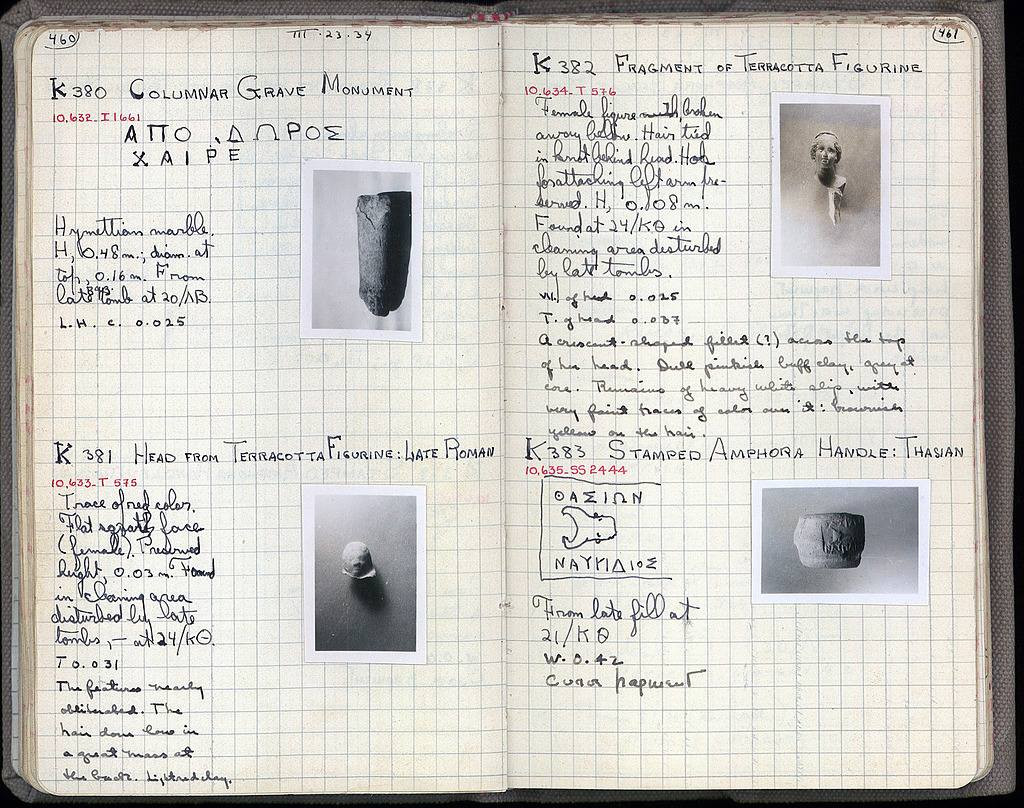 460
III·23·34
K 380 COLUMNAR GRAVE MONUMENT
10,632-I 1661
ΑΠΟ . ΔΩΡΟΣ
ΧΑΙΡΕ
Hymettian marble.
H, 0.48 m.; diam. at
top, 0.16 m. From
late tomb at 20/ΛΒ.
L.H. c. 0.025
K 381 HEAD FROM TERRACOTTA FIGURINE: LATE ROMAN
10,633-T 575
Trace of red color.
Flat face
(female). Preserved
height, 0.03 m. Found
in cleaning area
disturbed by late
tombs, – at 24/ΚΘ.
T 0.031
The features nearly
obliterated. The
hair done low in
a great mass at
the back. Light red clay.
461
K 382 FRAGMENT OF TERRACOTTA FIGURINE
10,634-T 576
Female figure with broken
away below. Hair tied
in knot behind head. Hole
for attaching left arm pre-
served. H, 0.108 m.
Found at 24/ΚΘ in
cleaning area disturbed
by late tombs.
W. of head 0.025
T. of head 0.037
A crescent-shaped fillet (?) across the top
of her head. Dull pinkish buff clay, grey at
core. Remains of heavy white slip, with
very faint traces of color over it: brownish
yellow on the hair.
K 383 STAMPED AMPHORA HANDLE: THASIAN
10,635-SS 2444
ΘΑΣΙΩΝ
ΝΑΥΚΙΔΙΟΣ
From late fill at
21/ΚΘ
W. 0.42